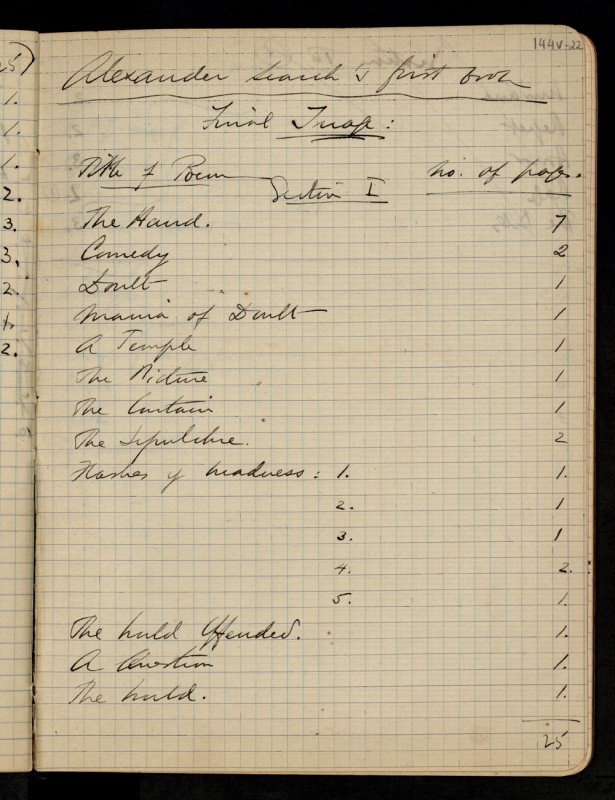 144V-22
Alexander Search's first book
Final Image:
Title of Poem no. of pages.
Section I
The Hand. 7
Comedy 2
Doubt 1
Mania of Doubt 1
A Temple 1
The Picture 1
The Curtain 1
The Sepulchre. 2
Flashes of Madness: 1. 1.
2. 1
3. 1
4. 2.
5. 1.
The World Offended. 1.
A Question 1.
The World. 1.
25
5)
1.
1.
1.
2.
3.
3.
2.
1.
2.